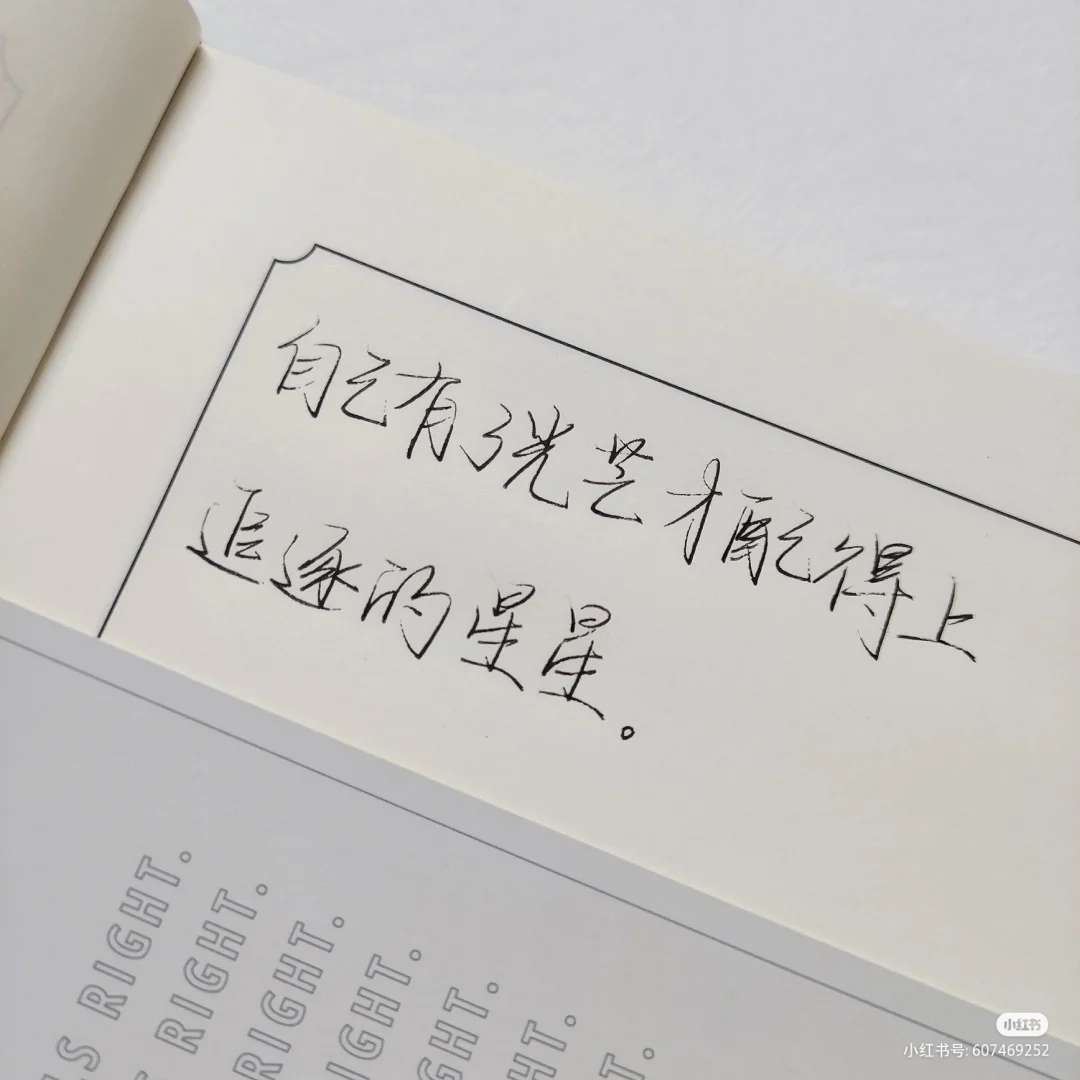 自己有了光芒才配得上
追逐的星星。
IS RIGHT.
S RIGHT.
RIGHT.
RIGHT.
IGHT.
GHT.
HT.
小红书
小红书号: 607469252